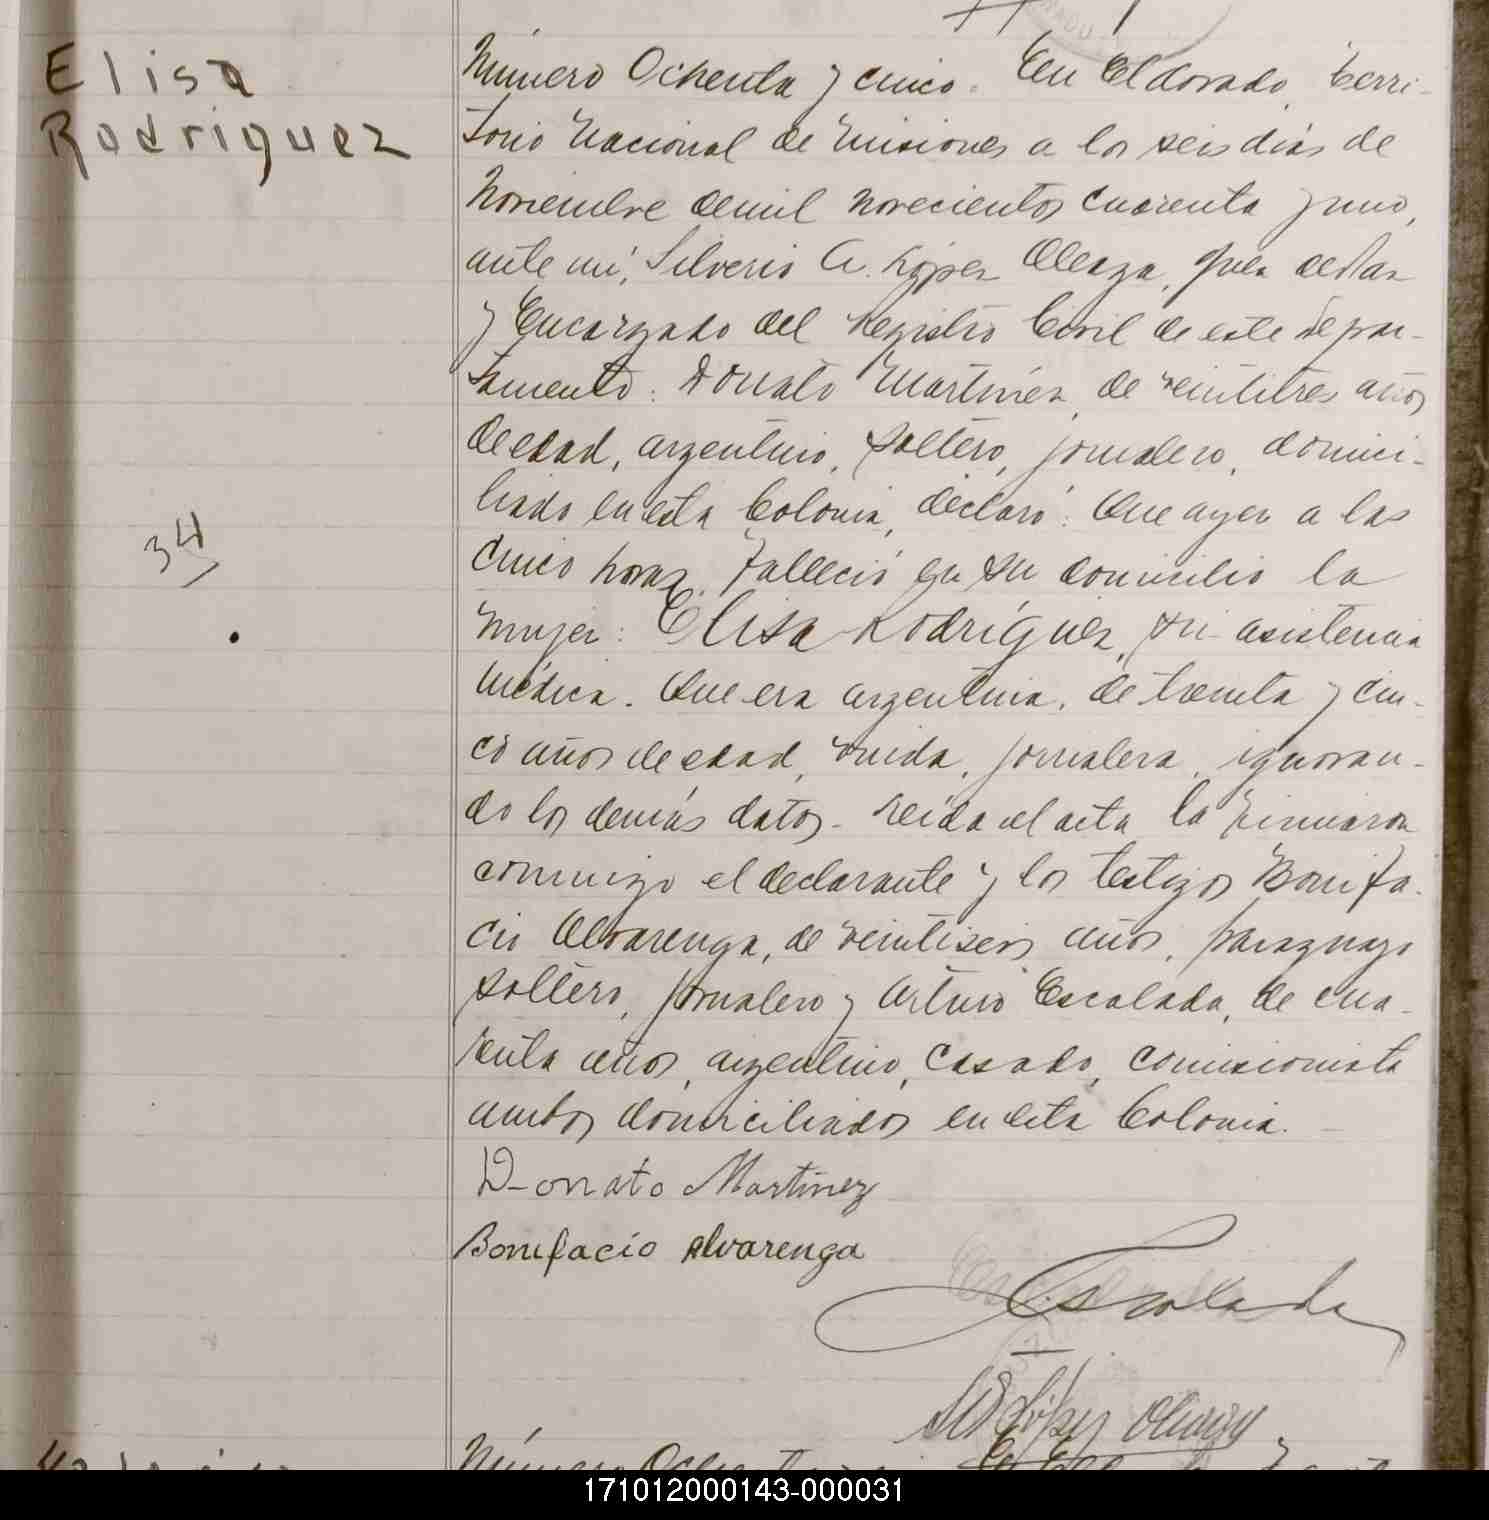 Elisa
Rodriguez
34
Número Ochenta y cinco. En Eldorado, Terri-
torio Nacional de Misiones a los seis días de
Noviembre de mil novecientos cuarenta y uno,
ante mí, Silverio A. López, Juez de Paz
y Encargado del Registro Civil de este Depar-
tamento: Donato Martínez, de veintitres años
de edad, argentino, soltero, jornalero, domici-
liado en esta Colonia, declaró: Que ayer a las
cinco horas, falleció en su domicilio la
mujer: Elisa Rodríguez, sin asistencia
médica. Que era argentina, de treinta y cin-
co años de edad, viuda, jornalera, ignoran-
do los demás datos. Leída el acta la firmaron
conmigo el declarante y los testigos Bonifa-
cio Alvarenga, de veintiseis años, paraguayo
soltero, jornalero y Arturo Escalada, de cua-
renta años, argentino, casado, comisionista
ambos domiciliados en esta Colonia.
Donato Martinez
Bonifacio Alvarenga
Escalada
López
Número
171012000143-000031